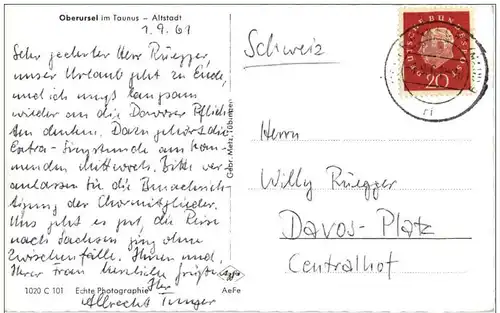 Oberursel im Taunus – Altstadt
1.9.61
Sehr geehrter Herr Rüegger,
unser Urlaub geht zu Ende,
und ich muß langsam
wieder an die Davoser Pflich-
ten denken. Dazu gehört die
Extra-Singstunde am kom-
menden Mittwoch. Bitte ver-
anlassen Sie die Benachrich-
tigung der Chormitglieder.
Uns geht es gut, die Reise
nach Sachsen ging ohne
Zwischenfälle. Ihnen und
Ihrer Frau herzliche Grüße
Ihr
Albrecht
1020 C 101 Echte Photographie
AeFe
Gebr. Metz, Tübingen
Schweiz
DEUTSCHE BUNDESPOST
20
Herrn
Willy Rüegger
Davos-Platz
Centralhof